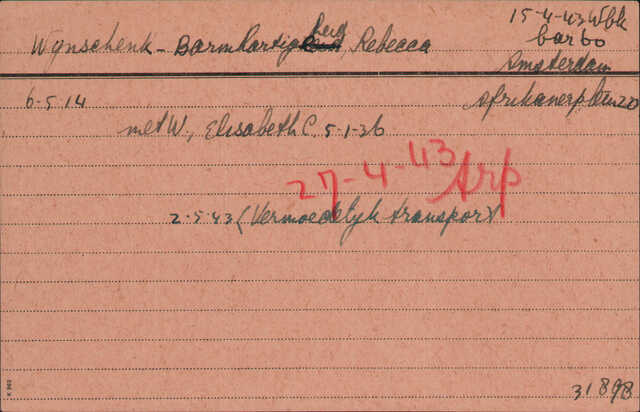 15-4-43 Wbk
Wynschenk - Barmhartigheid, Rebecca
barbo
Amsterdam
6-5-14
Afrikanerplein 20
met W., Elisabeth C. 5-1-36
27-4-43 trp
2-5-43 (Vermoedelyk transport)
K 963
31898